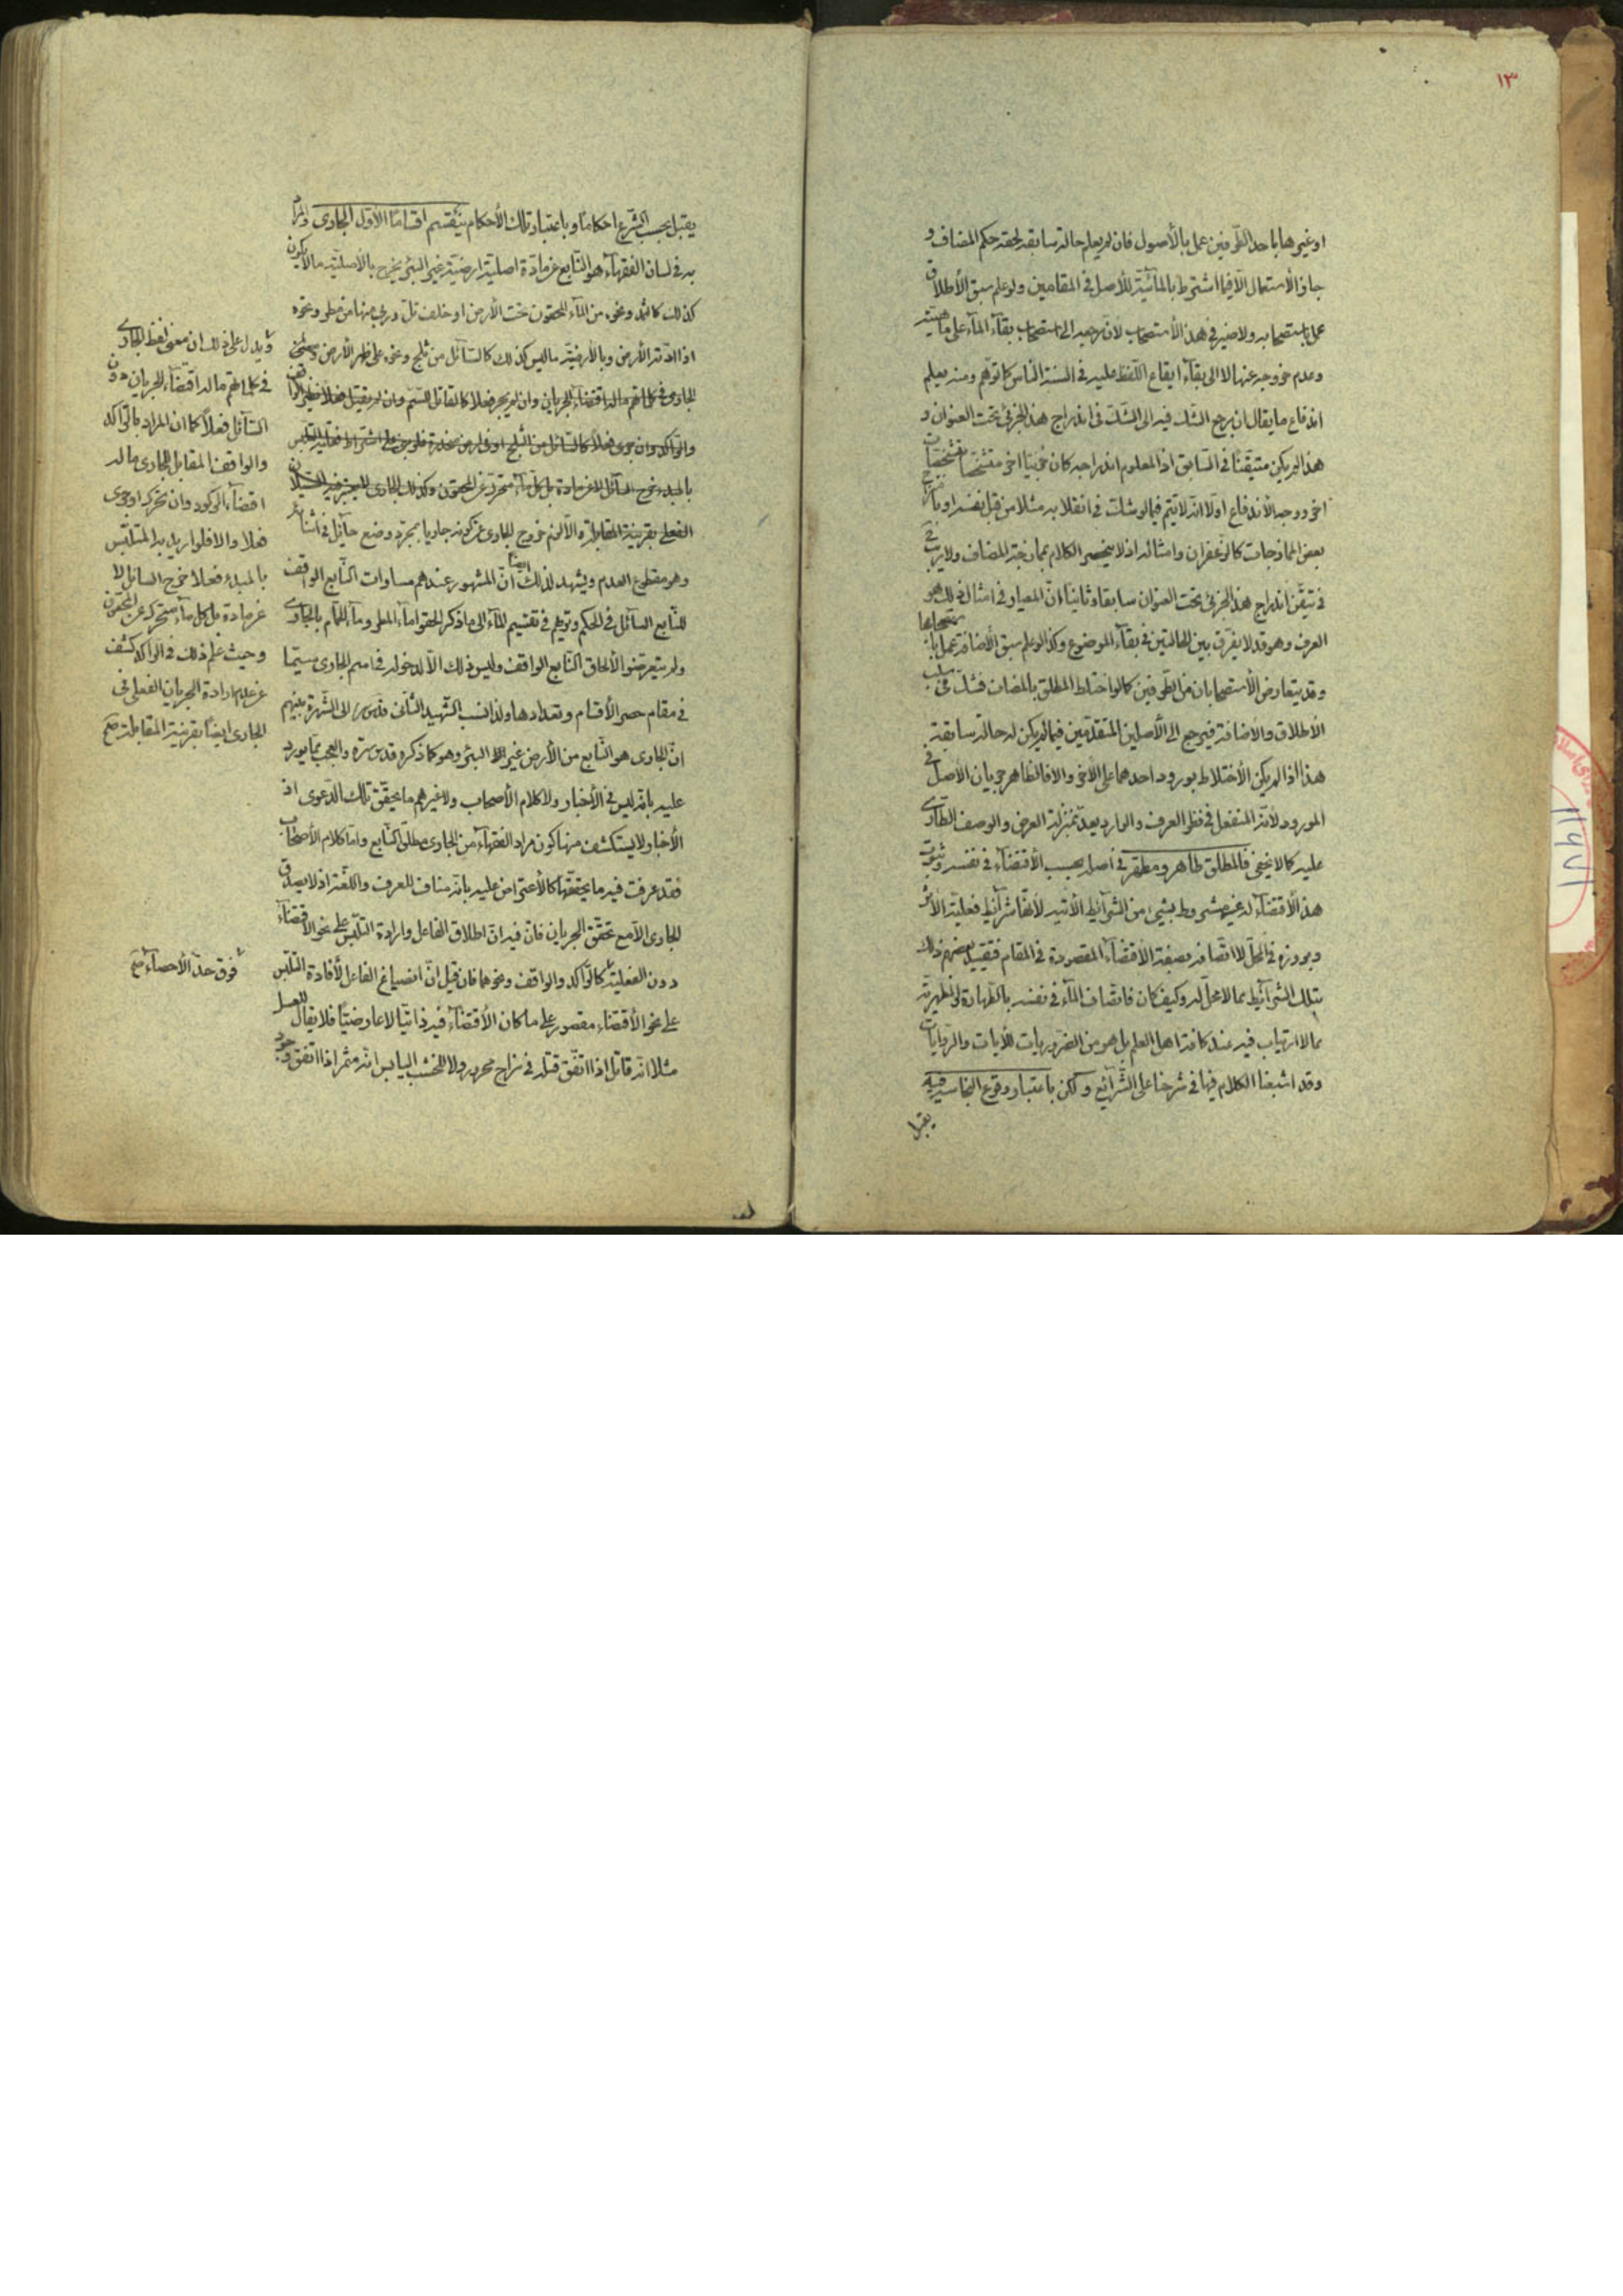 ١٣
او غيرهما باحد الطرفين عمل بالأصول فان لم يعلم حالته سابقه لحقه حكم المضاف و
جاز الأستعمال الّا فيما اشترط بالمائيّة للأصل فى المقامين ولو علم سبق الأطلاق
عمل باستصحابه ولا ضير فى هذا الأستصحاب لأن مرجعه الى استصحاب بقآء المآء على ماهيّته
وعدم خروجه عنها لا الى بقآء ايقاع اللّفظ عليه فى السنة النّاس كما توهّم ومنه يعلم
اندفاع ما يقال ان مرجع الشّك فيه الى الشّك فى اندراج هذا الجزئى تحت العنوان و
هذا لم يكن متيقّنا فى السّابق اذ المعلوم اندراجه كان جزئيّا اخر متشخّصا بتشخّصات
اخر ووجه الأندفاع اولا انّه لا يتم فيما لو شك فى انقلابه مثلا من قبل نفسه او
بعض الممازجات كالزّعفران وامثاله اذ لا ينحصر الكلام بممازجة المضاف ولا ريب
فى تيقّن اندراج هذا الجزئى تحت العنوان سابقا وثانيا انّ المعيار فى امثال ذلك هو
العرف وهو قد لا يفرّق بين الحالتين فى بقآء الموضوع وكذا لو علم سبق الأضافة عملا باستصحابها
وقد يتعارض الأستصحابان من الطّرفين كما لو اختلط المطلق بالمضاف فشكّ فى سلب
الأطلاق والأضافة فيرجع الى الأصلين المتقدّمين فيما لم يكن له حالة سابقة
هذا اذا لم يكن الأختلاط بورود احدهما على الأخر والّا فالظاهر جريان الأصل فى
المورود لأنّه المنفعل فى نظر العرف والوارد يعدّ بمنزلة العرض والوصف الطّارى
عليه كما لا يخفى فالمطلق طاهر ومطهّر فى اصله بحسب الأقتضآء فى نفسه وثبوت
هذا الأقتضآء له غير مشروط بشيئ من الشّرآئط الأتية لأنّها شرآئط فعليّة الأثر
وبروزه فى المحل لا اتّصافه بصفة الأقتضآء المقصودة فى المقام فتقييد بعضهم ذلك
بتلك الشّرآئط ممّا لا محلّ له وكيف كان فاتّصاف المآء فى نفسه بالطّهارة والمطهّرية
ممّا لا ارتياب فيه عند كافة اهل العلم بل هو من الضّروريات للأيات والرّوايات
وقد اشبعنا الكلام فيها فى شرحنا على الشّرآئع ولكن باعتبار وقوع النجاسة فيه
يقبل
يقبل بحسب الشّرع احكاما وباعتبار تلك الأحكام ينقسم اقساما الأوّل الجارى والمراد
به فى لسان الفقهآء هو النّابع عن مادّة اصلية ارضيّة غير البئر يخرج بالأصليّة ما لا يكون
كذلك كالثمد ونحوه من المآء المحقون تحت الأرض او خلف تلّ وربى منها من مطر ونحوه
اذا ادّته الأرض وبالأرضيّة ما ليس كذلك كالسّآئل من ثلج ونحوه على ظهر الأرض ومعنى
الجارى فى كلماتهم ماله اقتضاء الجريان وان لم يجر فعلا كالقاتل للسّم وان لم يقتل فعلا نظير الواقف
والرّاكد وان جرى فعلا كالسّائل من الثلج او فى ارض منحدرة فلو بنى على اشتراط فعليّة التلبّس
بالمبدء خرج السآئل لا عن مادة بل كلّ مآء متحرّك عن المحقون وكذلك الجارى لا يعتبر فيه السّيلان
الفعلى بقرينة المقابلة والّا لزم خروج الجارى عن كونه جاريا بمجرّد وضع حآئل فى اثنائه
وهو مقطوع العدم ويشهد لذلك ايضا انّ المشهور عندهم مساوات النّابع الواقف
للنّابع السّائل فى الحكم وتريهم فى تقسيم المآء الى ما ذكر الحقوا مآء المطر ومآء الحمّام بالجارى
ولم يتعرّضوا لألحاق النّابع الواقف وليس ذلك الّا لدخوله فى اسم الجارى سيّما
فى مقام حصر الأقسام وتعدادها ولذا نسب الشّهيد الثّانى قدس سرّه الى الشّهرة بينهم
انّ الجارى هو النّابع من الأرض غير البئر وهو كما ذكره قدس سرّه والعجب ممّا يورد
عليه بانّه ليس فى الأخبار ولا كلام الأصحاب ولا غيرهم ما يحقّق تلك الدّعوى اذ
الأخبار ولا يستكشف منها كون مراد الفقهآء من الجارى مطلق النّابع وامّا كلام الأصحاب
فقد عرفت فيه ما يحقّقها كالأعتراض عليه بانّه مناف للعرف واللّغة اذ لا يصدق
الجارى الّا مع تحقّق الجريان فانّ فيه انّ اطلاق الفاعل وارادة التلبّس على نحو الأقتضآء
دون الفعليّة كالرّاكد والواقف ونحوهما فان قيل انّ انصياغ الفاعل لأفادة التلبّس
على نحو الأقتضاء مقصور على ما كان الأقتضآء فيه ذاتيّا لا عارضيّا فلا يقال للعسل
مثلا انّه قاتل اذا اتّفق قتله فى مزاج محرور ولا للخشب اليابس انّه مثمر اذا اتفق
ويدلّ على ذلك ان معنى لفظ الجارى
فى كلماتهم ماله اقتضآء الجريان دون
السّآئل فعلا كما ان المراد بالرّاكد
والواقف المقابل للجارى ماله
اقتضآء الركود وان تحرّك او جرى
فعلا والا فلو اريد به المتلبّس
بالمبدء فعلا خرج السائل لا
عن مادة بل كل مآء متحرك عن المحقون
وحيث علم ذلك فى الراكد كشف
عن عدم ارادة الجريان الفعلى فى
الجارى ايضا بقرينة المقابلة صح
فوق حدّ الأحصآء صح